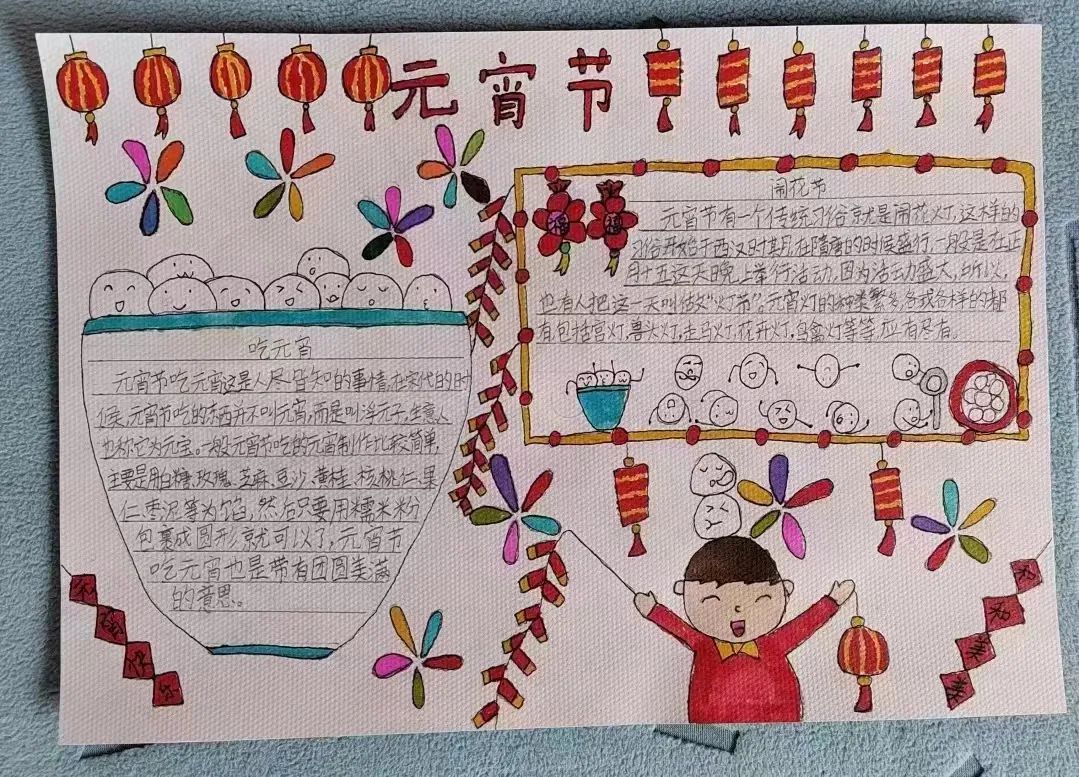 元宵节
吃元宵
元宵节吃元宵这是人尽皆知的事情,在宋代的时
候,元宵节吃的东西并不叫元宵,而是叫浮元子,生意人
也称它为元宝。一般元宵节吃的元宵制作比较简单,
主要是用白糖,玫瑰,芝麻,豆沙,黄桂,核桃仁,果
仁枣泥等为馅,然后只要用糯米粉
包裹成圆形就可以了,元宵节
吃元宵也是带有团圆美满
的意思。
福 福
闹花节
元宵节有一个传统习俗就是闹花灯,这样的
习俗开始于西汉时期,在隋唐的时候盛行,一般是在正
月十五这天晚上举行活动,因为活动盛大,所以,
也有人把这一天叫做“灯节”。元宵灯的种类繁多,各式各样的都
有包括宫灯,兽头灯,走马灯,花卉灯,鸟禽灯等等,应有尽有.
和和美美